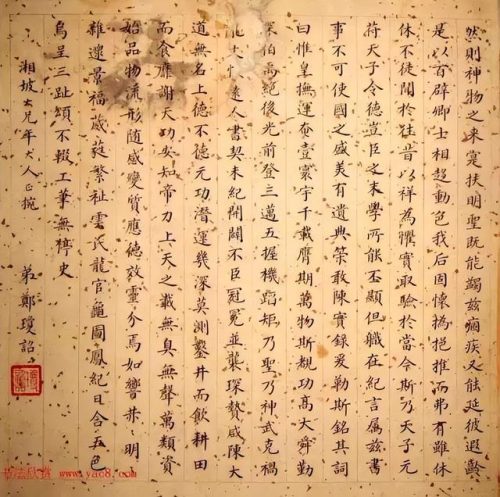 然則神物之來寔扶明聖既能蠲兹痼疾又能延彼遐齡
是以百辟卿士相趨動色我后固懷撝挹推而弗有雖休
休不徒聞於往昔以祥為懼實取驗於當今斯乃天子元
符天子令德豈臣之末學所能丕顯但職在紀言屬兹書
事不可使國之盛美有遺典策敢陳實錄爰勒斯銘其詞
曰惟皇撫運奄壹寰宇千載膺期萬物斯覩功高大舜勤
深伯禹絕後光前登三邁五握機蹈矩乃聖乃神武克禍
遠人書契未紀開闢不臣冠冕並襲琛贄咸陳大
道無名上德不德元功潛運幾深莫測鑿井而飲耕田
而食靡謝天功安知帝力上天之載無臭無聲萬類資
始品物流形隨感變質應德效靈介焉如響赫明
雜遝景福葳蕤繁祉雲氏龍官龜圖鳳紀日含五色
烏呈三趾頌不輟工筆無停史
湘坡大兄年大人正腕
弟鄭瓊詔
书法欣赏 www.yac8.com